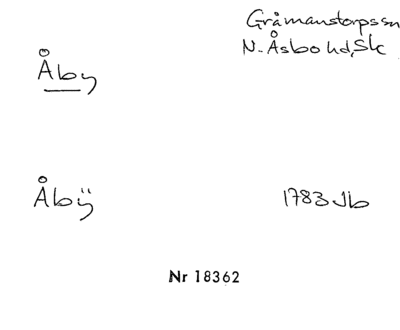 Gråmanstorpssn
N. Åsbo hd, Sk
Åby
Åbÿ
1783 Jb
Nr 18362